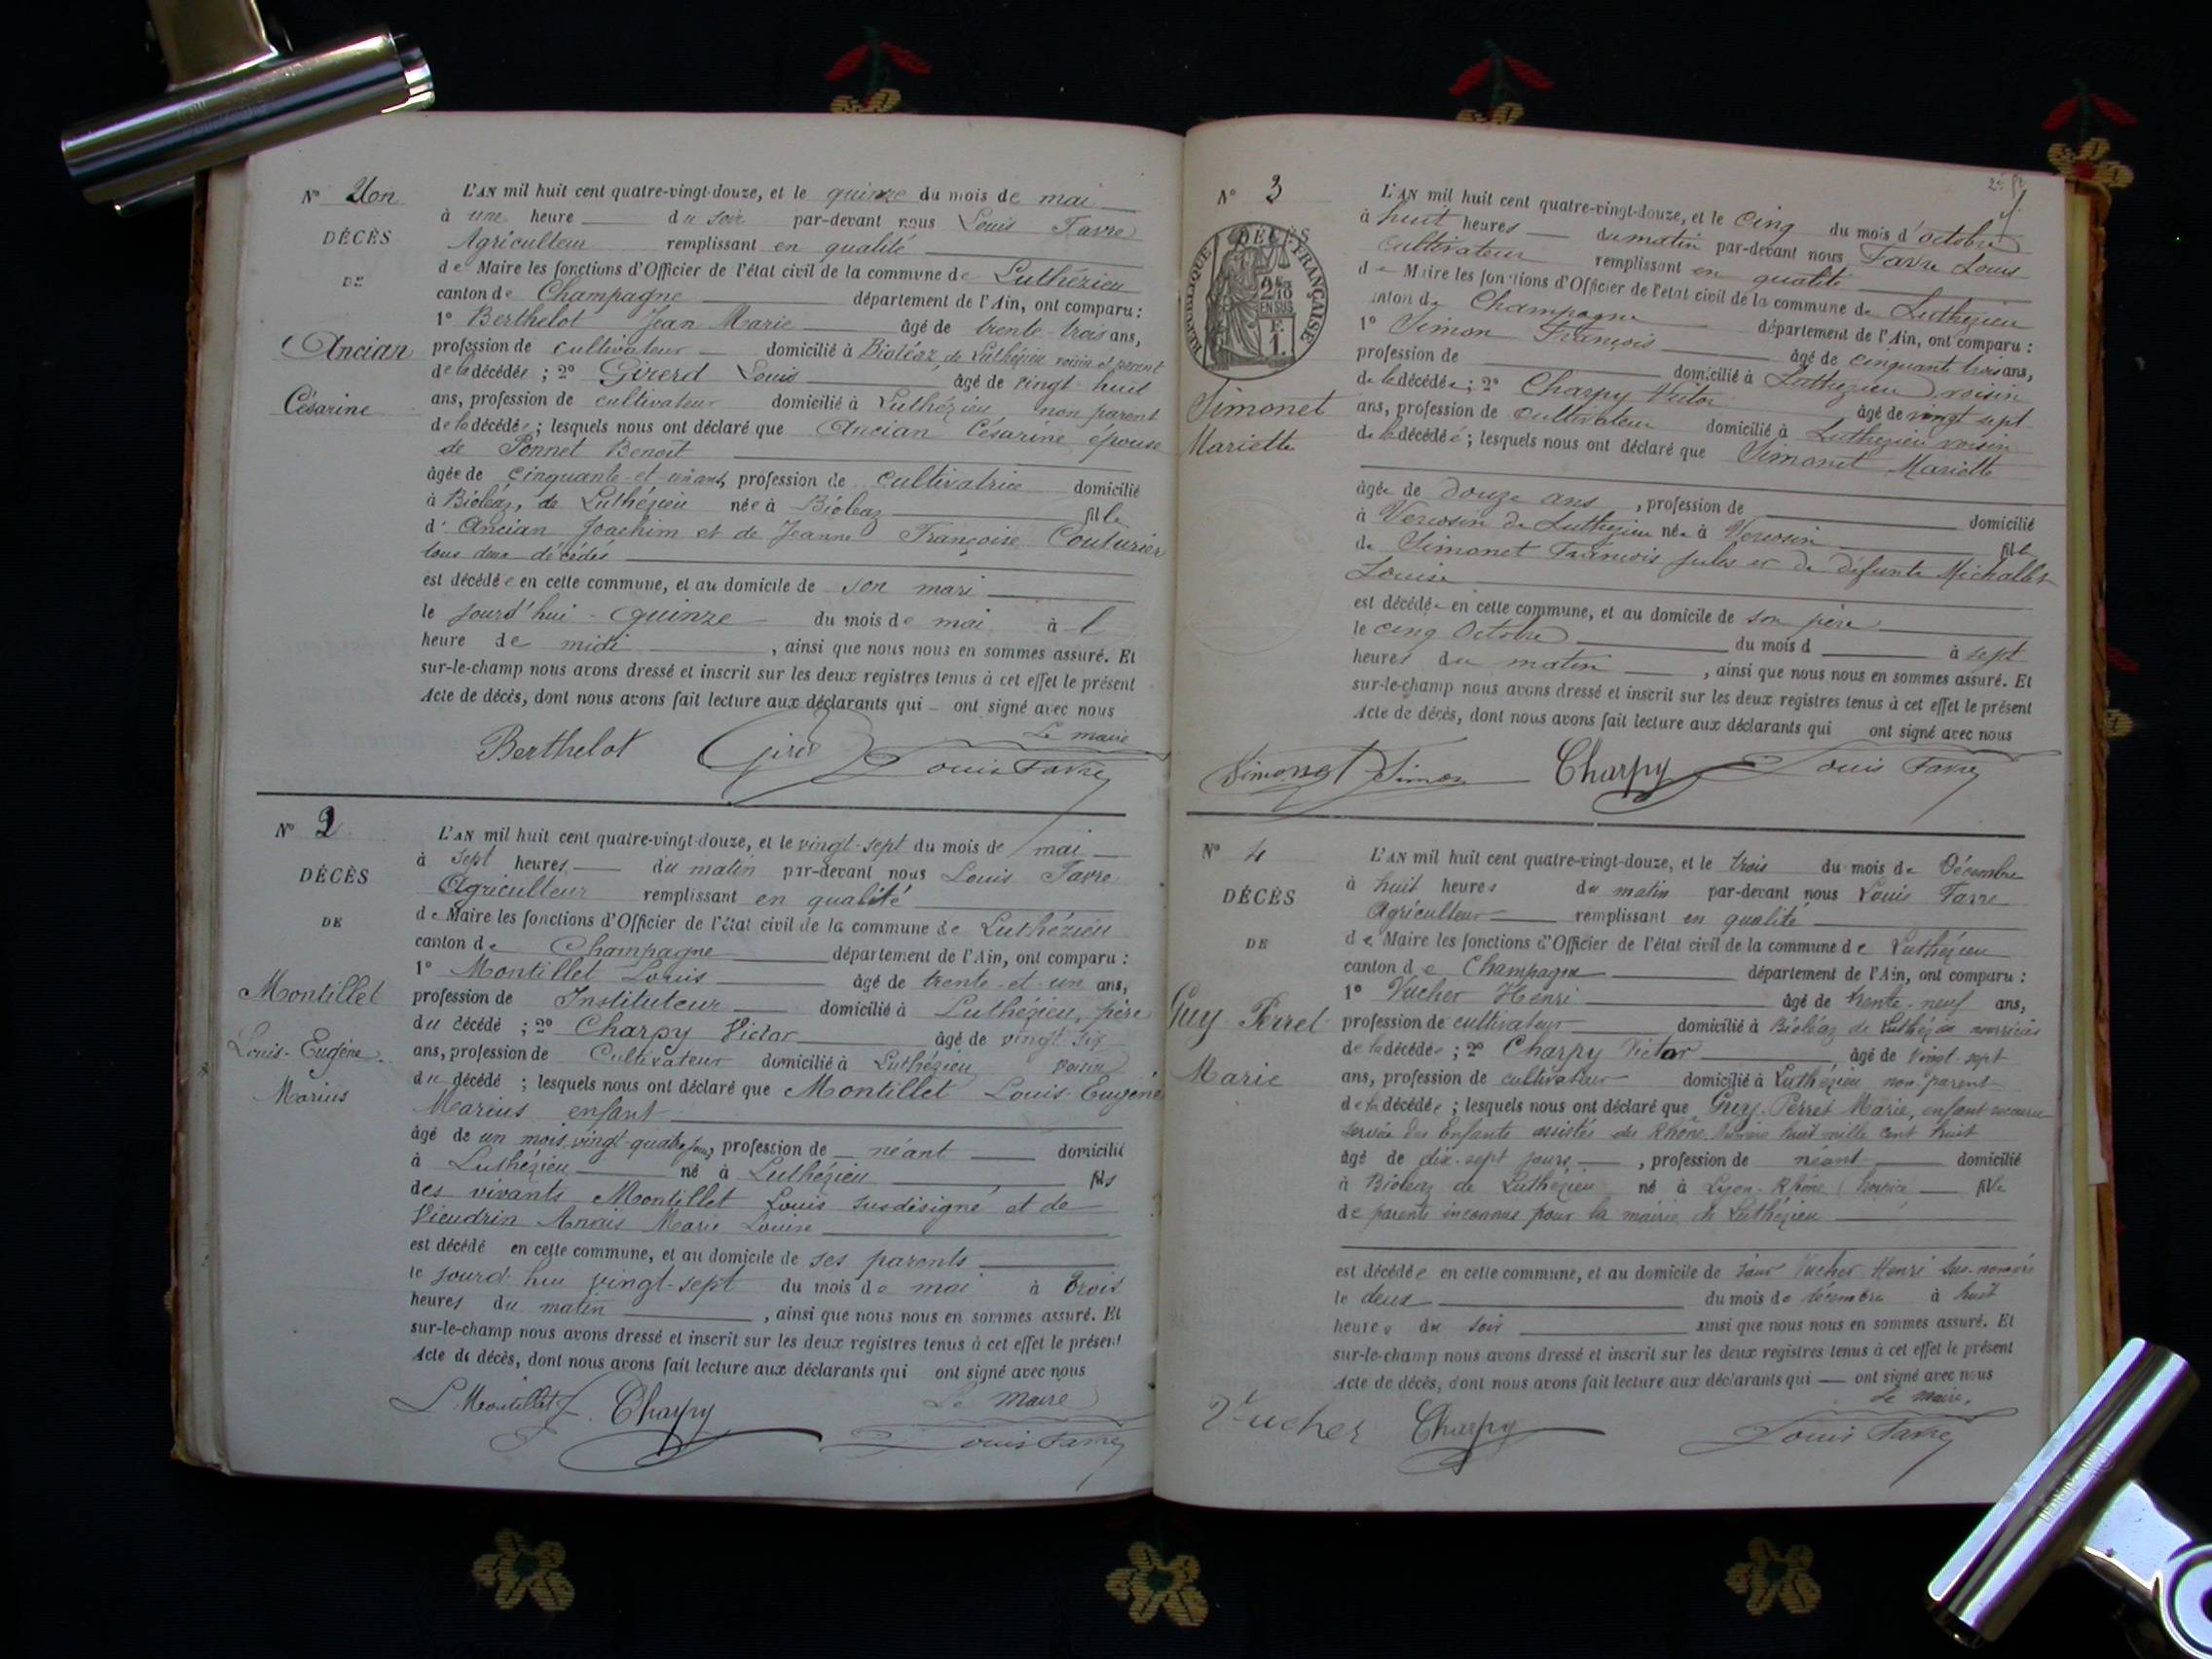 N° Un
DÉCÈS
DE
Ancian
Césarine
L'AN mil huit cent quatre-vingt-douze, et le quinze du mois de mai
à une heure du soir par-devant nous Louis Favre
Agriculteur remplissant en qualité
de Maire les fonctions d'Officier de l'état civil de la commune de Luthézieu
canton de Champagne département de l'Ain, ont comparu :
1° Berthelot Jean Marie âgé de trente-trois ans,
profession de cultivateur domicilié à Bioléaz, de Luthézieu voisin et parent
de la décédée ; 2° Girerd Louis âgé de vingt-huit
ans, profession de cultivateur domicilié à Luthézieu, non parent
de la décédée ; lesquels nous ont déclaré que Ancian Césarine épouse
de Ponnet Benoît
âgée de cinquante-et-un ans, profession de cultivatrice domicilié
à Bioléaz, de Luthézieu née à Bioléaz fille
d'Ancian Joachim et de Jeanne Françoise Couturier
tous deux décédés
est décédée en cette commune, et au domicile de son mari
le jourd'hui quinze du mois de mai à l
heure de midi, ainsi que nous nous en sommes assuré. Et
sur-le-champ nous avons dressé et inscrit sur les deux registres tenus à cet effet le présent
Acte de décès, dont nous avons fait lecture aux déclarants qui ont signé avec nous
Le maire
Berthelot Louis Favre
N° 2
DÉCÈS
DE
Montillet
Louis-Eugène
Marius
L'AN mil huit cent quatre-vingt-douze, et le vingt-sept du mois de mai
à sept heures du matin par-devant nous Louis Favre
Agriculteur remplissant en qualité
de Maire les fonctions d'Officier de l'état civil de la commune de Luthézieu
canton de Champagne département de l'Ain, ont comparu :
1° Montillet Louis âgé de trente-et-un ans,
profession de Instituteur domicilié à Luthézieu, père
du décédé ; 2° Charpy Victor âgé de vingt-six
ans, profession de Cultivateur domicilié à Luthézieu voisin
du décédé ; lesquels nous ont déclaré que Montillet Louis-Eugène
Marius enfant
âgé de un mois vingt-quatre jours, profession de néant domicilié
à Luthézieu né à Luthézieu fils
des vivants Montillet Louis susdésigné et de
Vieudrin Anaïs Marie Louise
est décédé en cette commune, et au domicile de ses parents
le jourd'hui vingt-sept du mois de mai à trois
heures du matin, ainsi que nous nous en sommes assuré. Et
sur-le-champ nous avons dressé et inscrit sur les deux registres tenus à cet effet le présent
Acte de décès, dont nous avons fait lecture aux déclarants qui ont signé avec nous
Le Maire
L. Montillet Charpy Louis Favre
N° 3
DÉCÈS
RÉPUBLIQUE FRANÇAISE
2/10 EN SUS
F. 1.
Simonet
Mariette
L'AN mil huit cent quatre-vingt-douze, et le cinq du mois d'octobre
à huit heures du matin par-devant nous Favre Louis
cultivateur remplissant en qualité
de Maire les fonctions d'Officier de l'état civil de la commune de Luthézieu
canton de Champagne département de l'Ain, ont comparu :
1° Simon François âgé de cinquante trois ans,
profession de domicilié à Luthézieu voisin
de la décédée ; 2° Charpy Victor âgé de vingt sept
ans, profession de cultivateur domicilié à Luthézieu voisin
de la décédée ; lesquels nous ont déclaré que Simonet Mariette
âgée de douze ans, profession de domicilié
à Vercosin de Luthézieu née à Vercosin fille
de Simonet François Jules et de défunte Michallet
Louise
est décédée en cette commune, et au domicile de son père
le cinq Octobre du mois d à sept
heures du matin, ainsi que nous nous en sommes assuré. Et
sur-le-champ nous avons dressé et inscrit sur les deux registres tenus à cet effet le présent
Acte de décès, dont nous avons fait lecture aux déclarants qui ont signé avec nous
Simonet Simon Charpy Louis Favre
N° 4
DÉCÈS
DE
Guy Perret
Marie
L'AN mil huit cent quatre-vingt-douze, et le trois du mois de Décembre
à huit heures du matin par-devant nous Louis Favre
Agriculteur remplissant en qualité
de Maire les fonctions d'Officier de l'état civil de la commune de Luthézieu
canton de Champagne département de l'Ain, ont comparu :
1° Vucher Henri âgé de trente-neuf ans,
profession de cultivateur domicilié à Bioléaz de Luthézieu nourricier
de la décédée ; 2° Charpy Victor âgé de vingt-sept
ans, profession de cultivateur domicilié à Luthézieu non parent
de la décédée ; lesquels nous ont déclaré que Guy-Perret Marie, enfant
service des Enfants assistés du Rhône, Numéro huit mille cent huit
âgé de dix-sept jours, profession de néant domicilié
à Bioléaz de Luthézieu né à Lyon-Rhône (hospice) fille
de parents inconnus pour la mairie de Luthézieu
est décédée en cette commune, et au domicile de Vucher Henri sus-nommé
le deux du mois de décembre à huit
heures du soir ainsi que nous nous en sommes assuré. Et
sur-le-champ nous avons dressé et inscrit sur les deux registres tenus à cet effet le présent
Acte de décès, dont nous avons fait lecture aux déclarants qui ont signé avec nous
Le Maire,
Vucher Charpy Louis Favre